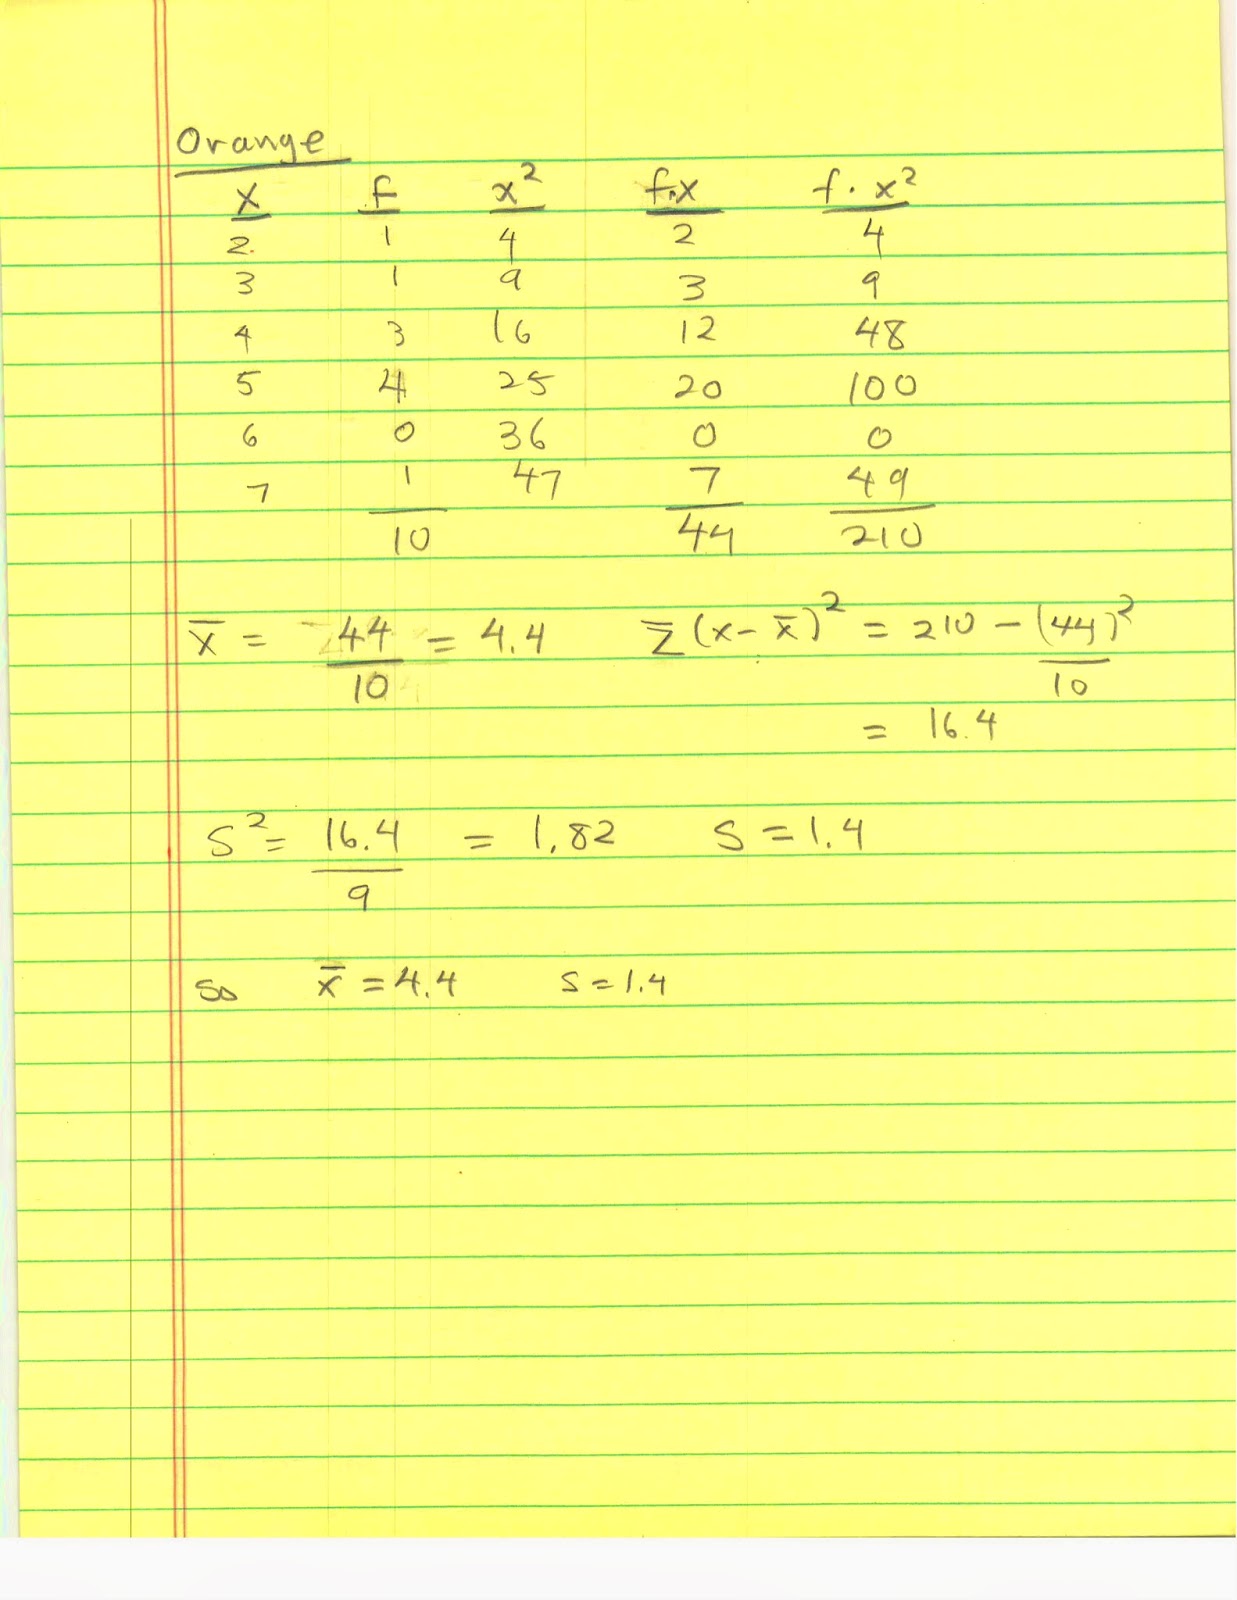 Orange
x f x² f·x f·x²
2 1 4 2 4
3 1 9 3 9
4 3 16 12 48
5 4 25 20 100
6 0 36 0 0
7 1 47 7 49
10 44 210
x̄ = 44/10 = 4.4 Σ(x-x̄)² = 210 - (44)²/10
= 16.4
S² = 16.4/9 = 1.82 S = 1.4
so x̄ = 4.4 s = 1.4